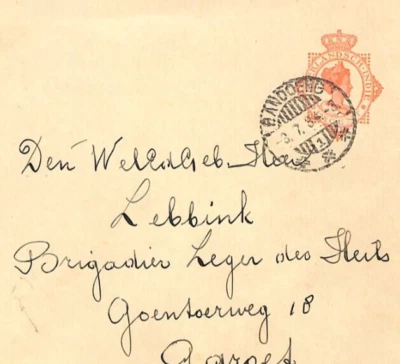 NEDERLANDSCH-INDIE
BANDOENG
3.7.3
Den WelEdGeb. Heer
Lebbink
Brigadier Leger des Heils
Goentoerweg 18
Garoet